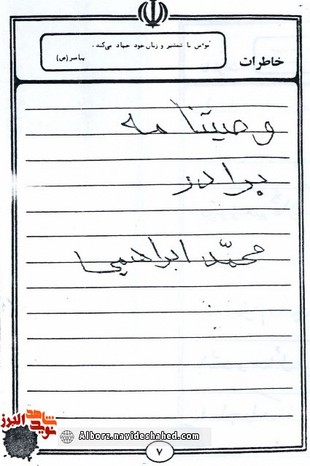 مؤمن با شمشیر و زبان خود جهاد می‌کند.
پیامبر (ص)
خاطرات
وصیتنامه
برادر
محمد ابراهیمی
شاهد
نوید
البرز
Alborz.navideshahed.com
۷